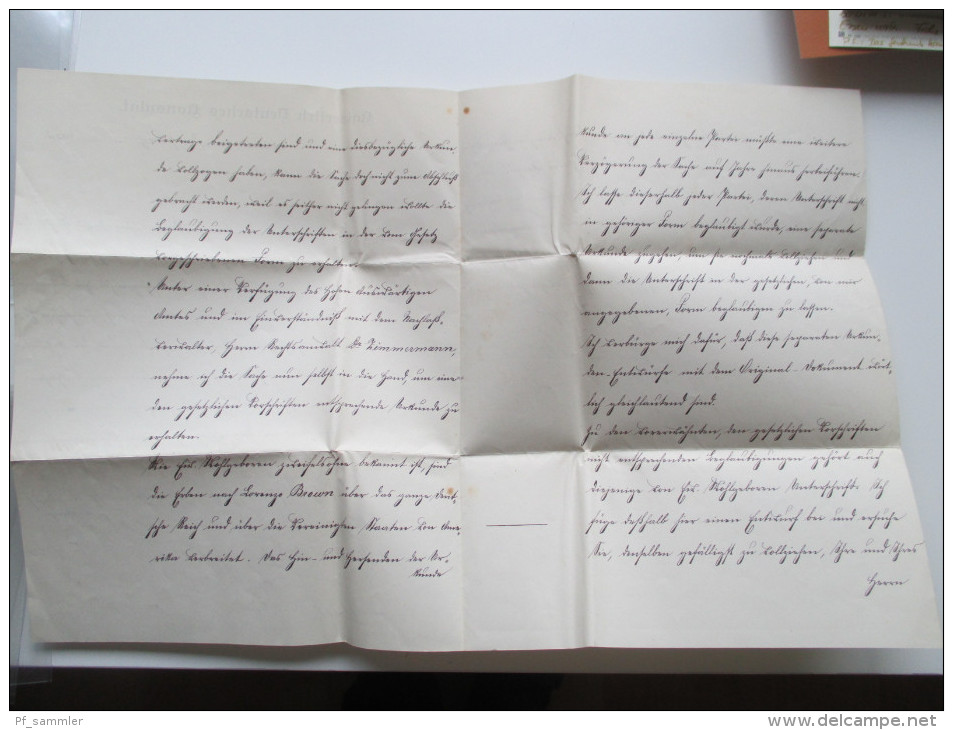 Vertrage beigetreten sind und eine diesbezügliche Urkun-
de vollzogen haben, kann die Sache doch nicht zum Abschluß
gebracht werden, weil es seither nicht gelungen wollte die
Beglaubigung der Unterschriften in der vom Gesetz
vorgeschriebenen Form zu erhalten.
Unter einer Verfügung des Hohen Auswärtigen
Amtes und im Einverständniß mit dem Nachlaß-
verwalter, Herrn Rechtsanwalt Dr Zimmermann,
nehme ich die Sache nun selbst in die Hand, um eine
den gesetzlichen Vorschriften entsprechende Urkunde zu
erhalten.
Wie Euer Wohlgeboren zweifelsohne bekannt ist, sind
die Erben nach Lorenz Brown über das ganze Deut-
sche Reich und über die Vereinigten Staaten von Ame-
rika verbreitet. Das Hin- und Hersenden der Ur-
kunde
kunde an jede einzelne Partei müßte eine weitere
Verzögerung der Sache auf Jahre hinaus herbeiführen.
Ich lasse dieserhalb jeder Partei, deren Unterschrift nicht
in gehöriger Form beglaubigt wurde, eine separate
Urkunde zugehen, um sie nochmals vollziehen und
dann die Unterschrift in der gesetzlichen, von mir
angegebenen, Form beglaubigen zu lassen.
Ich verbürge mich dafür, daß diese separaten Urkun-
den-Entwürfe mit dem Original-Dokument wört-
lich gleichlautend sind.
Zu den vorerwähnten, den gesetzlichen Vorschriften
nicht entsprechenden Beglaubigungen gehört auch
diejenige von Euer Wohlgeboren Unterschrift. Ich
füge deßhalb hier einen Entwurf bei und ersuche
Sie, denselben gefälligst zu vollziehen, Ihre und Ihres
Herrn
Pf_sammler
www.delcampe.net